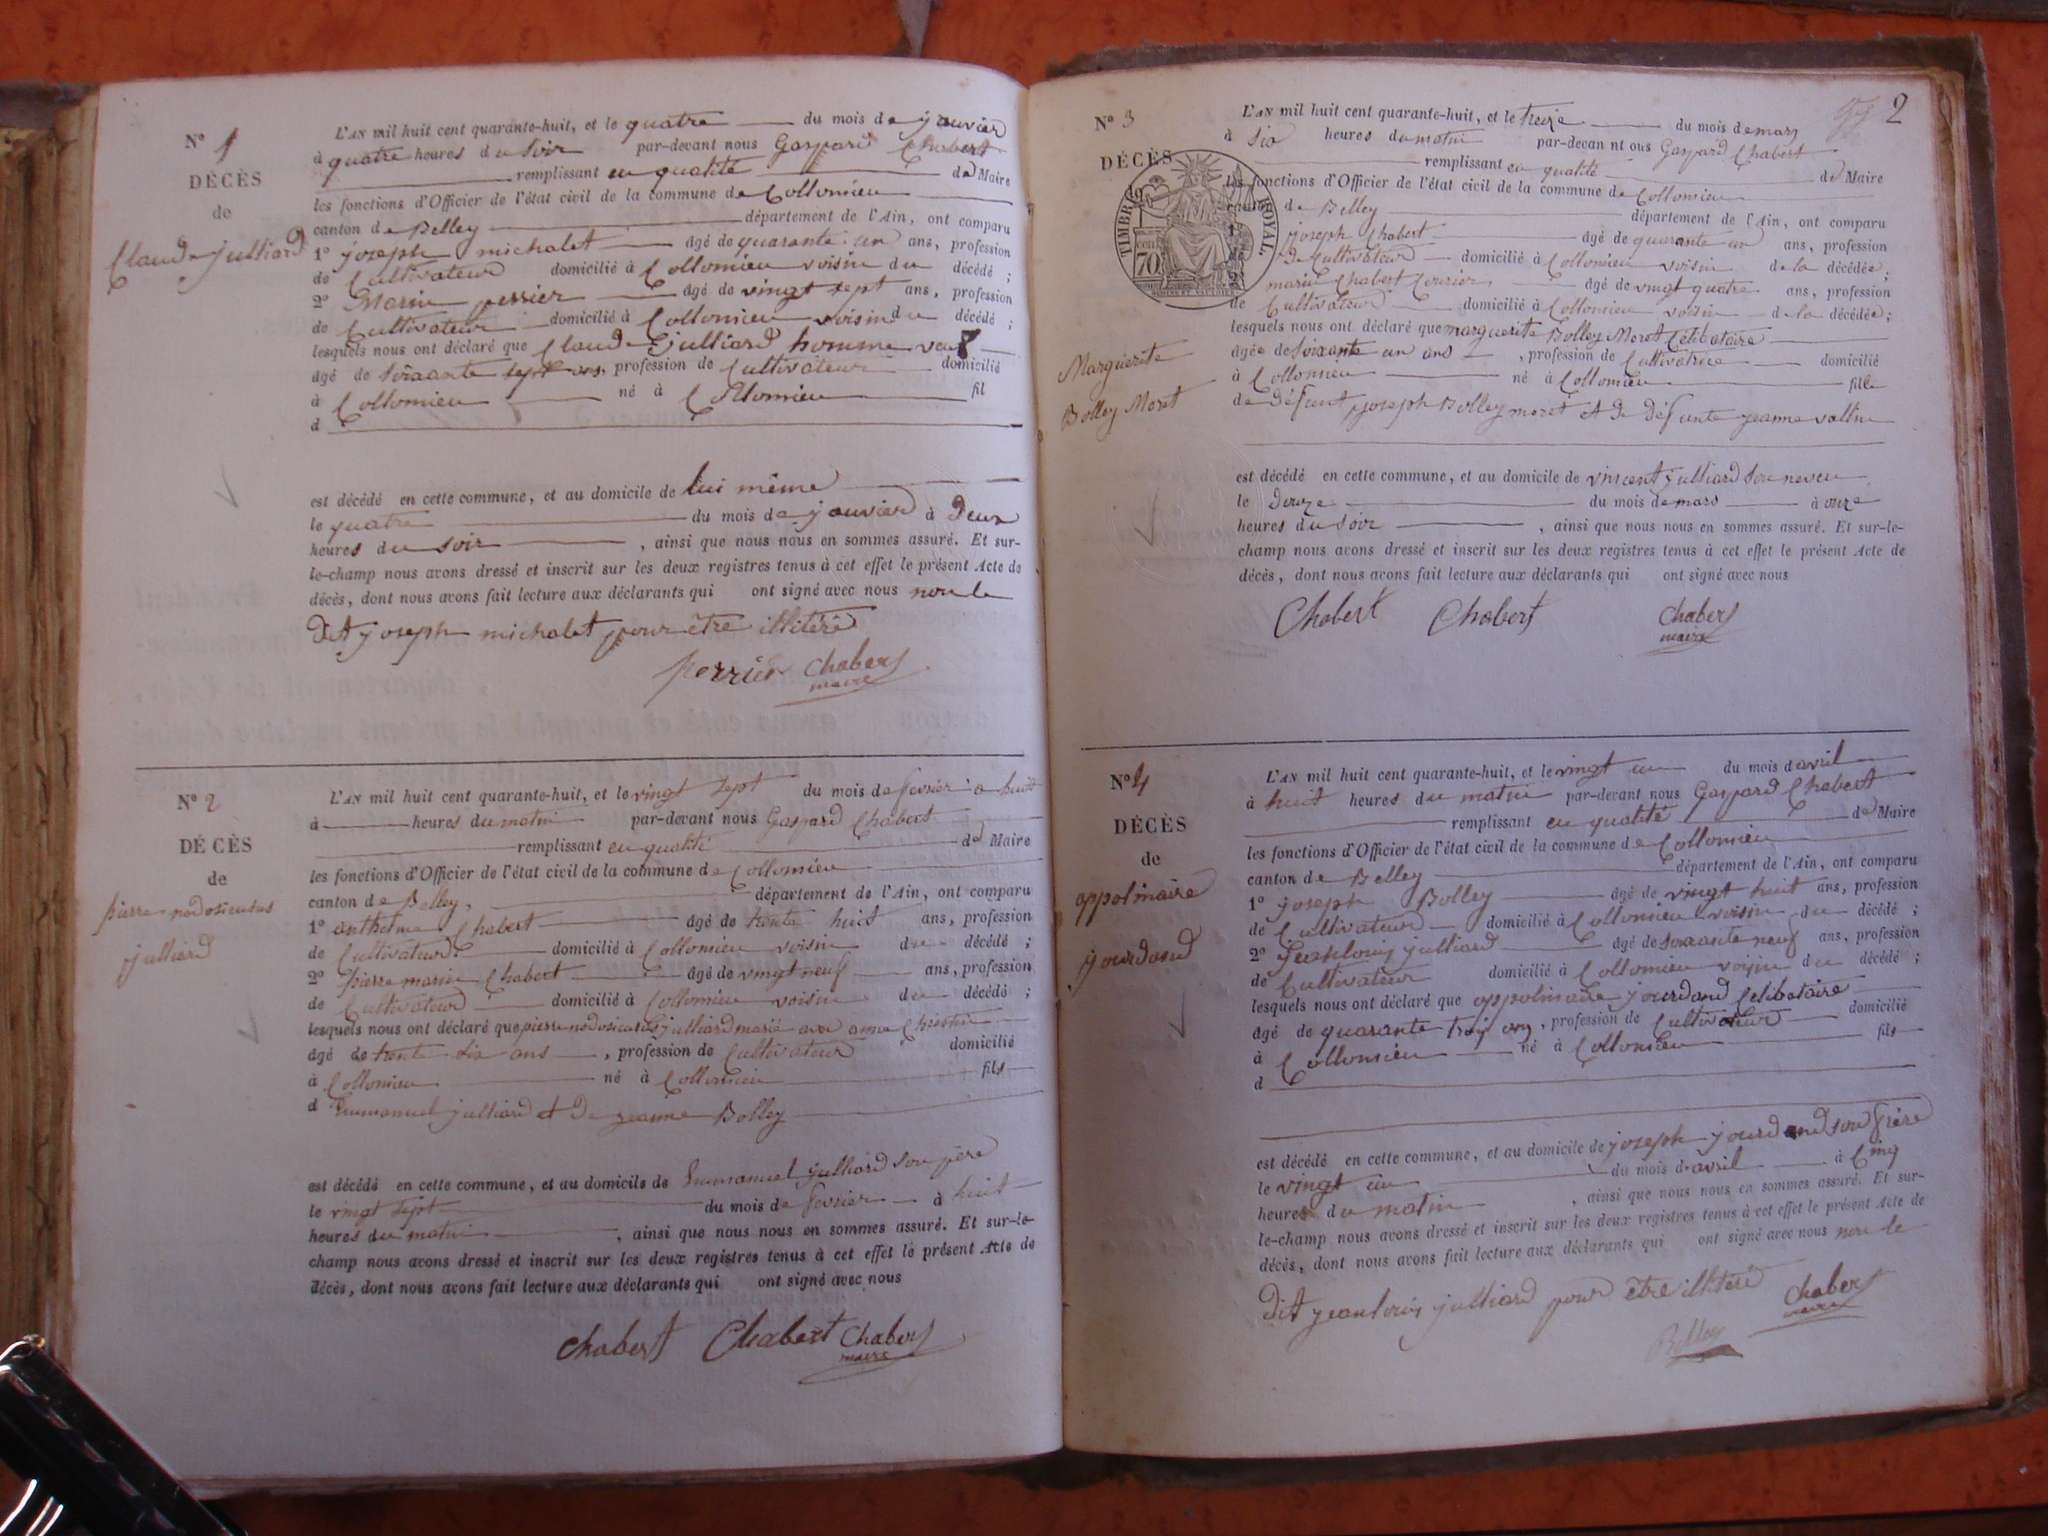 N° 1
DÉCÈS
de
Claude Julliard
L'AN mil huit cent quarante-huit, et le quatre du mois de janvier
à quatre heures du soir par-devant nous Gaspard Chabert
remplissant en qualité de Maire
les fonctions d'Officier de l'état civil de la commune de Collomieu
canton de Belley département de l'Ain, ont comparu
1° joseph michalet âgé de quarante un ans, profession
de Cultivateur domicilié à Collomieu voisin du décédé ;
2° Marin perrier âgé de vingt sept ans, profession
de Cultivateur domicilié à Collomieu voisin du décédé ;
lesquels nous ont déclaré que Claude Julliard homme veuf
âgé de soixante sept ans, profession de Cultivateur domicilié
à Collomieu né à Collomieu fil
d
est décédé en cette commune, et au domicile de lui même
le quatre du mois de janvier à deux
heures du soir , ainsi que nous nous en sommes assuré. Et sur-
le-champ nous avons dressé et inscrit sur les deux registres tenus à cet effet le présent Acte de
décès, dont nous avons fait lecture aux déclarants qui ont signé avec nous non le
dit joseph michalet pour être illitéré
perrier Chabert
maire
N° 2
DÉCÈS
de
pierre
julliard
L'AN mil huit cent quarante-huit, et le vingt sept du mois de fevrier à huit
à heures du matin par-devant nous Gaspard Chabert
remplissant en qualité de Maire
les fonctions d'Officier de l'état civil de la commune de Collomieu
canton de Belley, département de l'Ain, ont comparu
1° anthelme Chabert âgé de trente huit ans, profession
de Cultivateur domicilié à Collomieu voisin du décédé ;
2° pierre marin Chabert âgé de vingt neuf ans, profession
de Cultivateur domicilié à Collomieu voisin du décédé ;
lesquels nous ont déclaré que pierre julliard marié avec
âgé de trente six ans , profession de Cultivateur domicilié
à Collomieu né à Collomieu fils
d Emmanuel julliard et de jeanne Bolley
est décédé en cette commune, et au domicile de Emmanuel julliard son père
le vingt sept du mois de fevrier à huit
heures du matin , ainsi que nous nous en sommes assuré. Et sur-le-
champ nous avons dressé et inscrit sur les deux registres tenus à cet effet le présent Acte de
décès, dont nous avons fait lecture aux déclarants qui ont signé avec nous
Chabert Chabert Chabert
maire
2
N° 3
DÉCÈS
de
TIMBRE ROYAL
70
Marguerite
Bolley Moret
L'AN mil huit cent quarante-huit, et le treize du mois de mars
à six heures du matin par-devan nt ous Gaspard Chabert
remplissant en qualité de Maire
les fonctions d'Officier de l'état civil de la commune de Collomieu
canton de Belley département de l'Ain, ont comparu
joseph Chabert âgé de quarante un ans, profession
de Cultivateur domicilié à Collomieu voisin de la décédée ;
marin Chabert âgé de vingt quatre ans, profession
de Cultivateur domicilié à Collomieu voisin de la décédée ;
lesquels nous ont déclaré que marguerite Bolley Moret Célibataire
âgée de soixante un ans , profession de Cultivatrice domicilié
à Collomieu né à Collomieu fille
de défunt joseph Bolley moret et de défunte jeanne
est décédé en cette commune, et au domicile de vincent julliard son neveu
le douze du mois de mars à onze
heures du soir , ainsi que nous nous en sommes assuré. Et sur-le-
champ nous avons dressé et inscrit sur les deux registres tenus à cet effet le présent Acte de
décès, dont nous avons fait lecture aux déclarants qui ont signé avec nous
Chabert Chabert Chabert
maire
N° 4
DÉCÈS
de
appolinaire
jourdand
L'AN mil huit cent quarante-huit, et le vingt un du mois d avril
à huit heures du matin par-devant nous Gaspard Chabert
remplissant en qualité de Maire
les fonctions d'Officier de l'état civil de la commune de Collomieu
canton de Belley département de l'Ain, ont comparu
1° joseph Bolley âgé de vingt huit ans, profession
de Cultivateur domicilié à Collomieu voisin du décédé ;
2° Jean louis julliard âgé de soixante neuf ans, profession
de Cultivateur domicilié à Collomieu voisin du décédé ;
lesquels nous ont déclaré que appolinaire jourdand Celibataire
âgé de quarante trois ans , profession de Cultivateur domicilié
à Collomieu né à Collomieu fils
d
est décédé en cette commune, et au domicile de joseph jourdand son frère
le vingt un du mois d avril à Cinq
heures du matin , ainsi que nous nous en sommes assuré. Et sur-
le-champ nous avons dressé et inscrit sur les deux registres tenus à cet effet le présent Acte de
décès, dont nous avons fait lecture aux déclarants qui ont signé avec nous non le
dit jean louis julliard pour être illitéré
Chabert
maire
Bolley